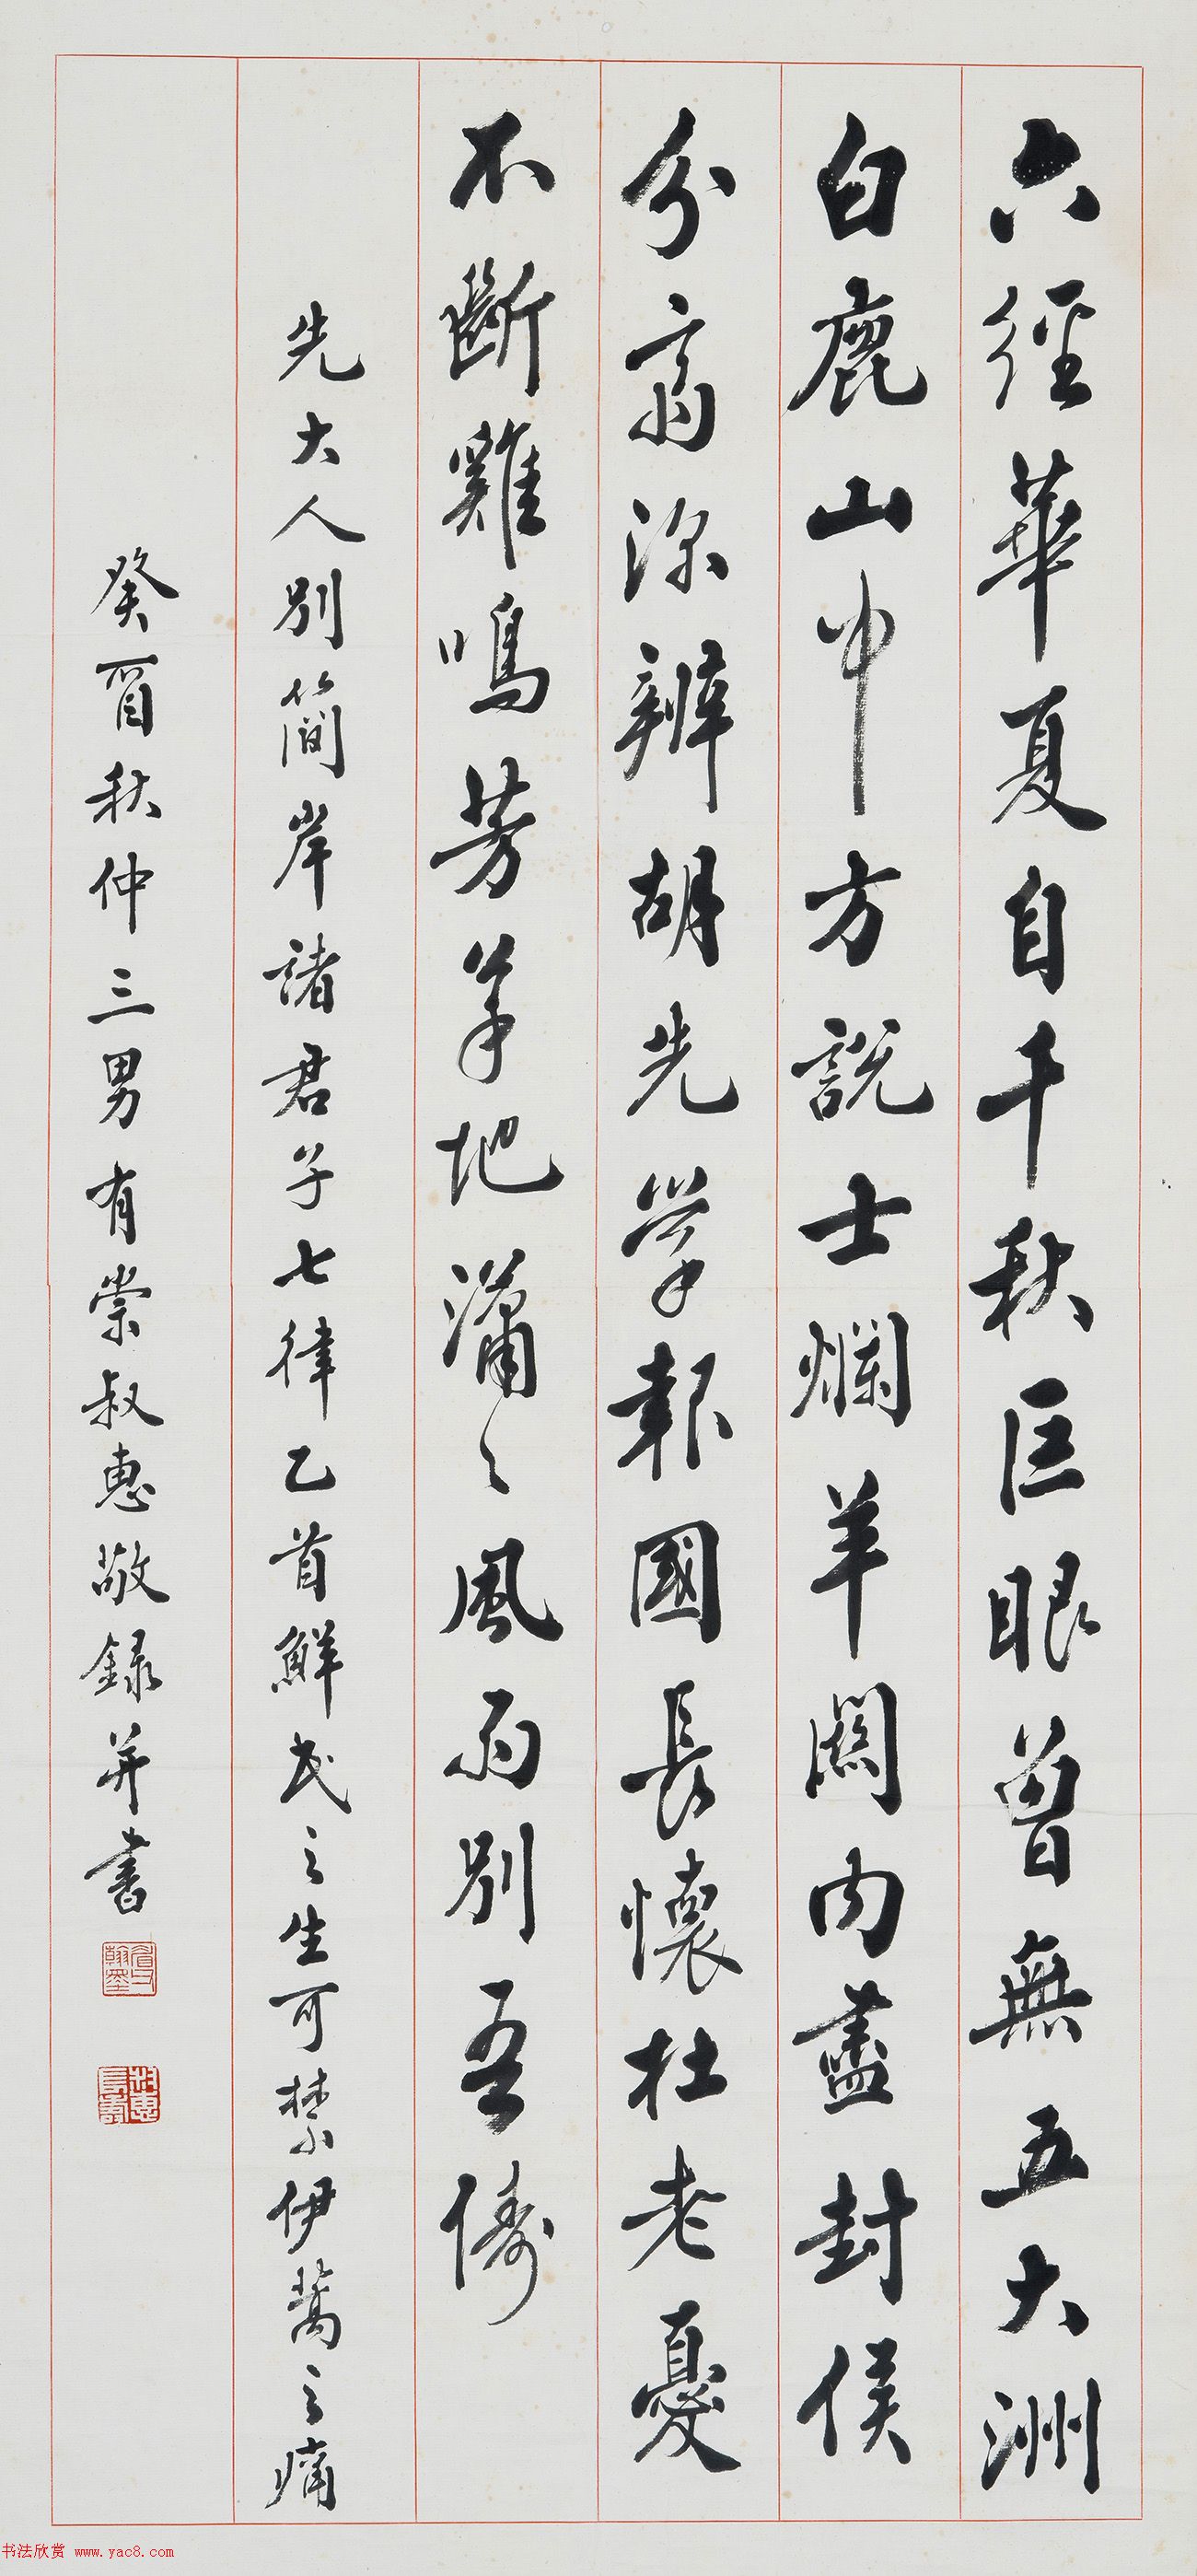 六經華夏自千秋巨眼曾無五大洲
白鹿山中方說士爛羊關内盡封侯
分齋深辨胡先學報國長懷杜老憂
不斷雞鳴芳草地瀟〻風雨別吾儔
先大人別簡岸諸君子七律乙首鮮民之生可禁伊蒿之痛
癸酉秋仲三男有崇叔惠敬録并書
书法欣赏 www.yac8.com